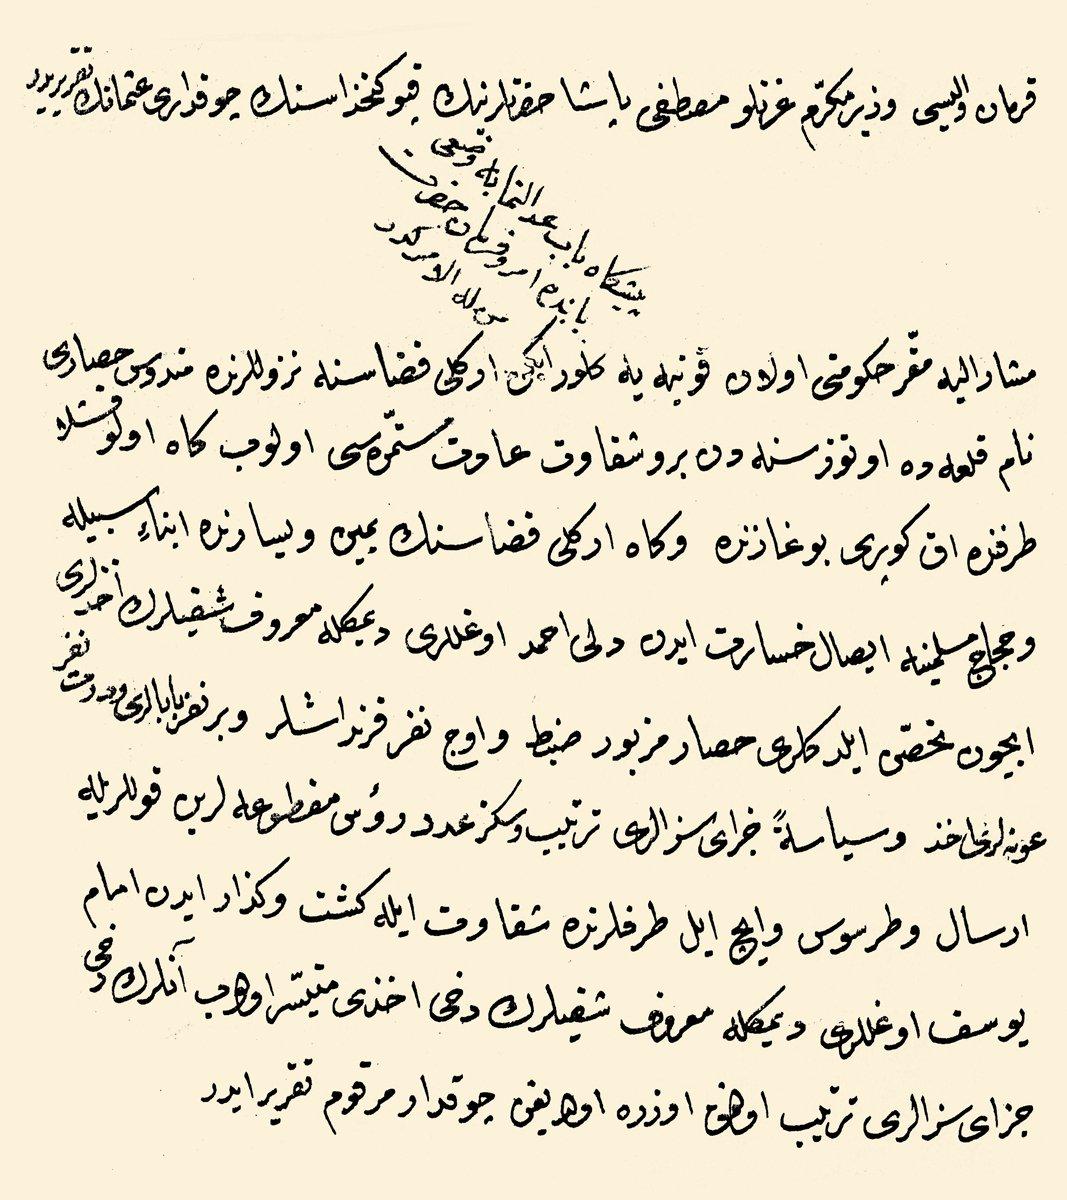 قرمان واليسى وزير مكرّم عزتلو مصطفى پاشا حضرتلرينك قپو كتخداسنك چوقدارى عثمانك تقريريدر
پيشكاه باب عدالتمآبه وضعى
بابنده امر و فرمان حضرت
من له الامركدر
مشار اليه مقرّ حكومتى اولان قونيه يه كلور ايكن اركلى قضاسنه نزوللرنده مندوس حصارى
نام قلعه ده اوتوز سنه دن برو شقاوت عادت مستمرّه سى اولوب كاه اولو قشلا
طرفنده اق كوپرى بوغازنده وكاه اركلى قضاسنك يمين ويسارنده ابناء سبيله
وحجاج مسلمينه ايصال خسارت ايدن دلى احمد اوغللرى ديمكله معروف شقيلرك اخذلرى
ايچون تحصّن ايلدكلرى حصار مزبور ضبط واوچ نفر فرنداشلر وبر نفر بابالرى ودرت نفر
عونه لرينى اخذ وسياسةً جزاى سزالرى ترتيب وسكز عدد رؤس مقطوعه لرين قوللريله
ارسال وطرسوس وايچ ايل طرفلرنده شقاوت ايله كشت وكذار ايدن امام
يوسف اوغللرى ديمكله معروف شقيلرك دخى اخذى متيسّر اولوب آنلرك دخى
جزاى سزالرى ترتيب اولنمق اوزره اولديغن چوقدار مرقوم تقرير ايدر